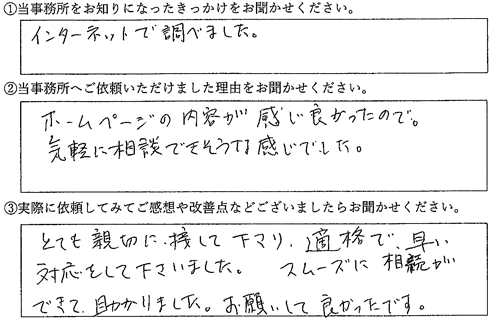 ①当事務所をお知りになったきっかけをお聞かせください。
インターネットで調べました。
②当事務所へご依頼いただけました理由をお聞かせください。
ホームページの内容が感じ良かったので。
気軽に相談できそうな感じでした。
③実際に依頼してみてご感想や改善点などございましたらお聞かせください。
とても親切に接して下マリ、適格で、早い
対応をして下さいました。 スムーズに相続が
できて、助かりました。お願いして良かったです。